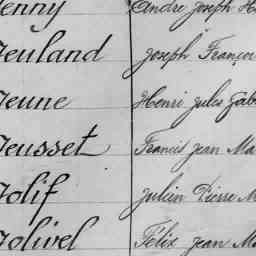 Jenny André Joseph
Jeuland Joseph François
Jeune Henri Jules Gab
Jeusset Francis Jean Ma
Jolif Julien Pierre M
Jolivel Félix Jean M